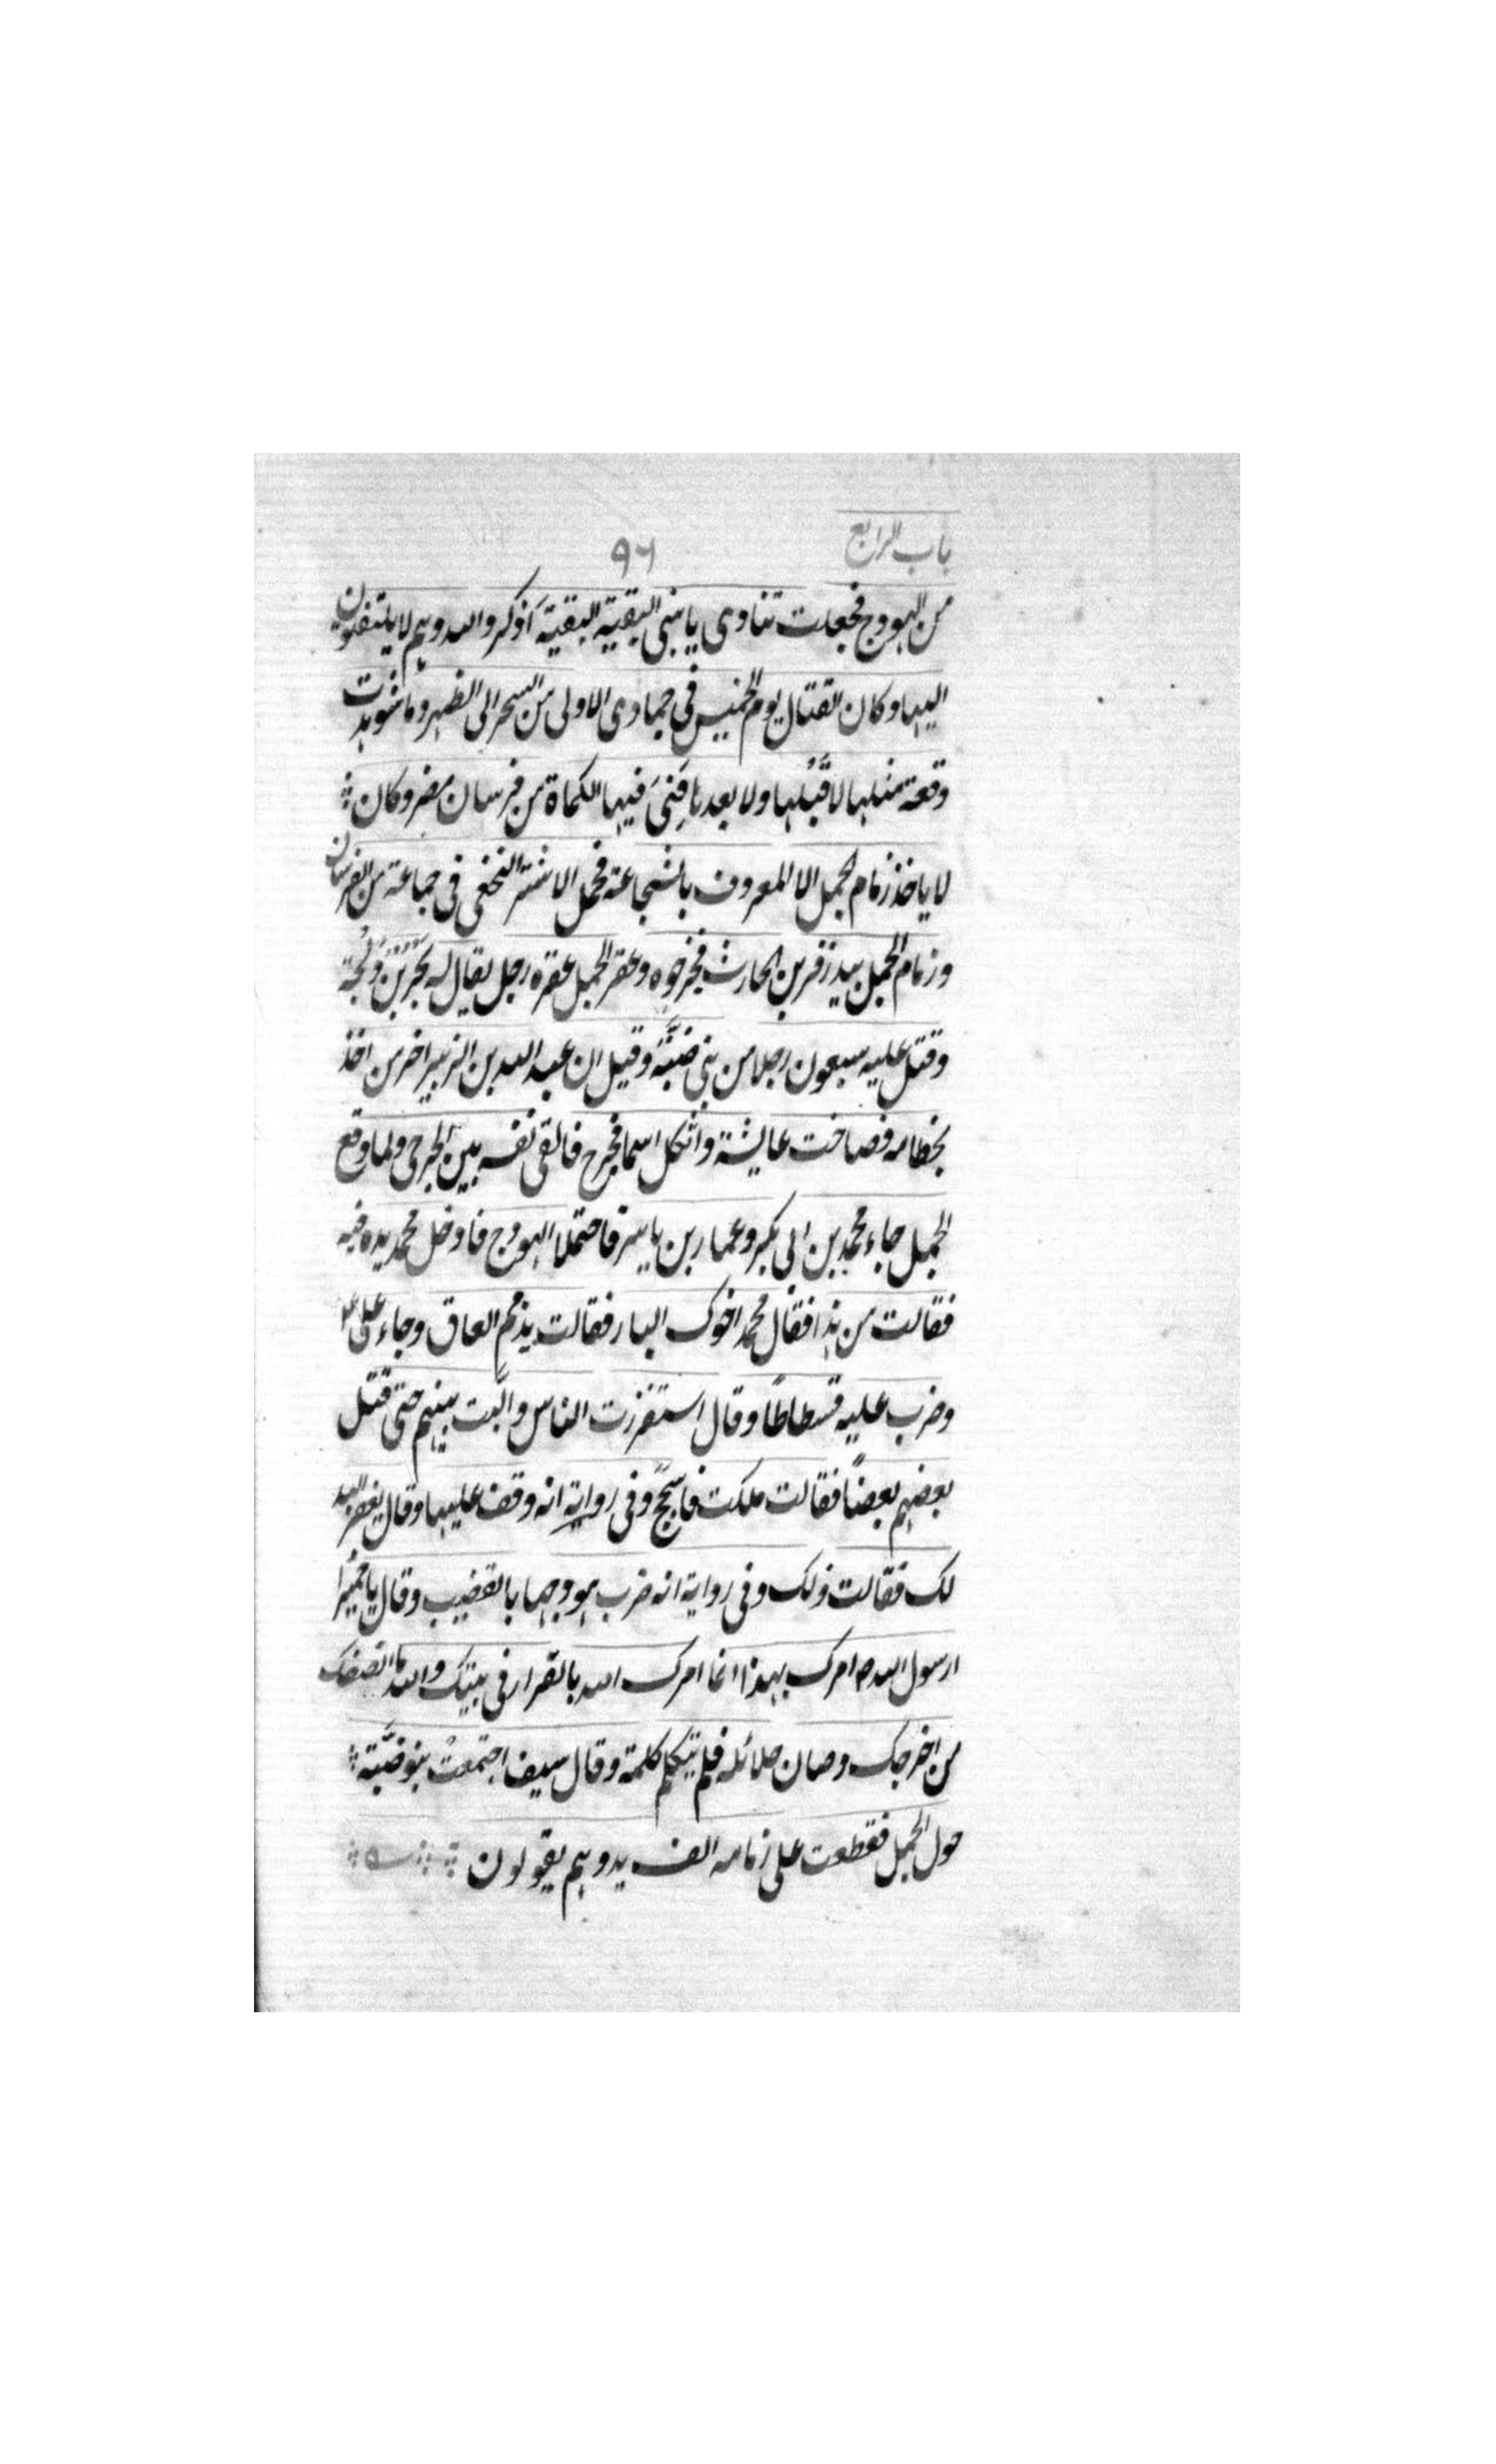 باب الرابع ٩٦
من الهودج فجعلت تنادى يا بنى البقية البقية اذكروا الله وهم لا يلتفتون
اليها وكان القتال يوم الخميس فى جمادى الاولى من السحر الى الظهر وما شوهدت
وقعة مثلها لا قبلها ولا بعدها فنى فيها الكماة من فرسان مضر وكان
لا ياخذ زمام الجمل الا المعروف بالشجاعة فحمل الاشتر النخعى فى جماعة من الفرسان
وزمام الجمل بيد زفر بن الحارث فجرحوه وعقر الجمل عقره رجل يقال له
وقتل عليه سبعون رجلا من بنى ضبّة وقيل ان عبد الله بن الزبير اخر من اخذ
بخطامه فصاحت عايشة واثكل اسما فجرح فالقى نفسه بين الجرحى ولما وقع
الجمل جاء محمد بن ابى بكر وعمار بن ياسر فاحتملا الهودج فادخل محمد يده فيه
فقالت من هذا فقال محمد اخوك البار فقالت مذمم العاق وجاء على
وضرب عليه فسطاطًا وقال استفززت الناس والّبت بينهم حتى قتل
بعضهم بعضًا فقالت ملكت فاسجح وفى رواية انه وقف عليها وقال يغفر الله
لك فقالت ولك وفى رواية انه ضرب هودجها بالقضيب وقال يا حميرا
ارسول الله ص امرك بهذا انما امرك الله بالقرار فى بيتك والله ما انصفك
من اخرجك وصان حلائله فلم تتكلم كلمة وقال سيف اجتمعت بنو ضبّة
حول الجمل فقطعت على زمامه الف يد وهم يقولون